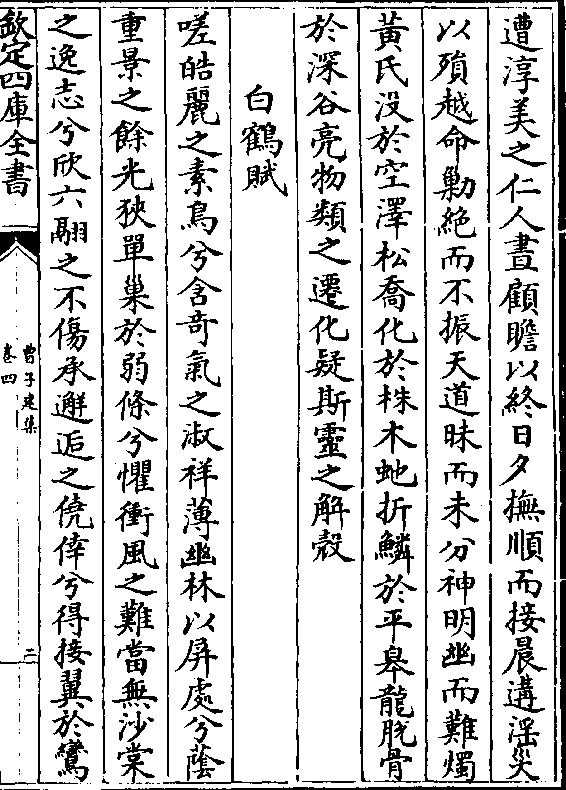 遭淳美之仁人晝顧瞻以終日夕撫順而接晨遘淫災
以殞越命勦絶而不振天道昧而未分神明幽而難燭
黃氏没於空澤松喬化於株木虵折鱗於平臯龍脱骨
於深谷亮物類之遷化疑斯靈之解殻
白鶴賦
嗟皓麗之素鳥兮含奇氣之淑祥薄幽林以屏處兮蔭
重景之餘光狹單巢於弱條兮懼衝風之難當無沙棠
之逸志兮欣六翮之不傷承邂逅之僥倖兮得接翼於鸞
欽定四庫全書
曹子建集
卷四
二